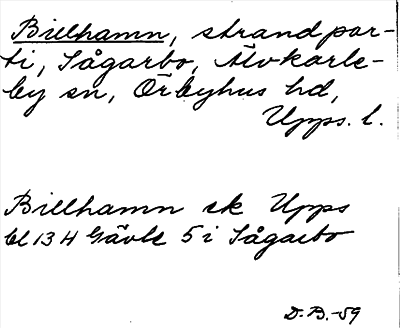 Billhamn, strandpar-
ti, Sågarbo, Älvkarle-
by sn, Örbyhus hd,
Upps. l.
Billhamn ek Upps
bl 13 H Gävle 5 i Sågarbo
D.B.-59